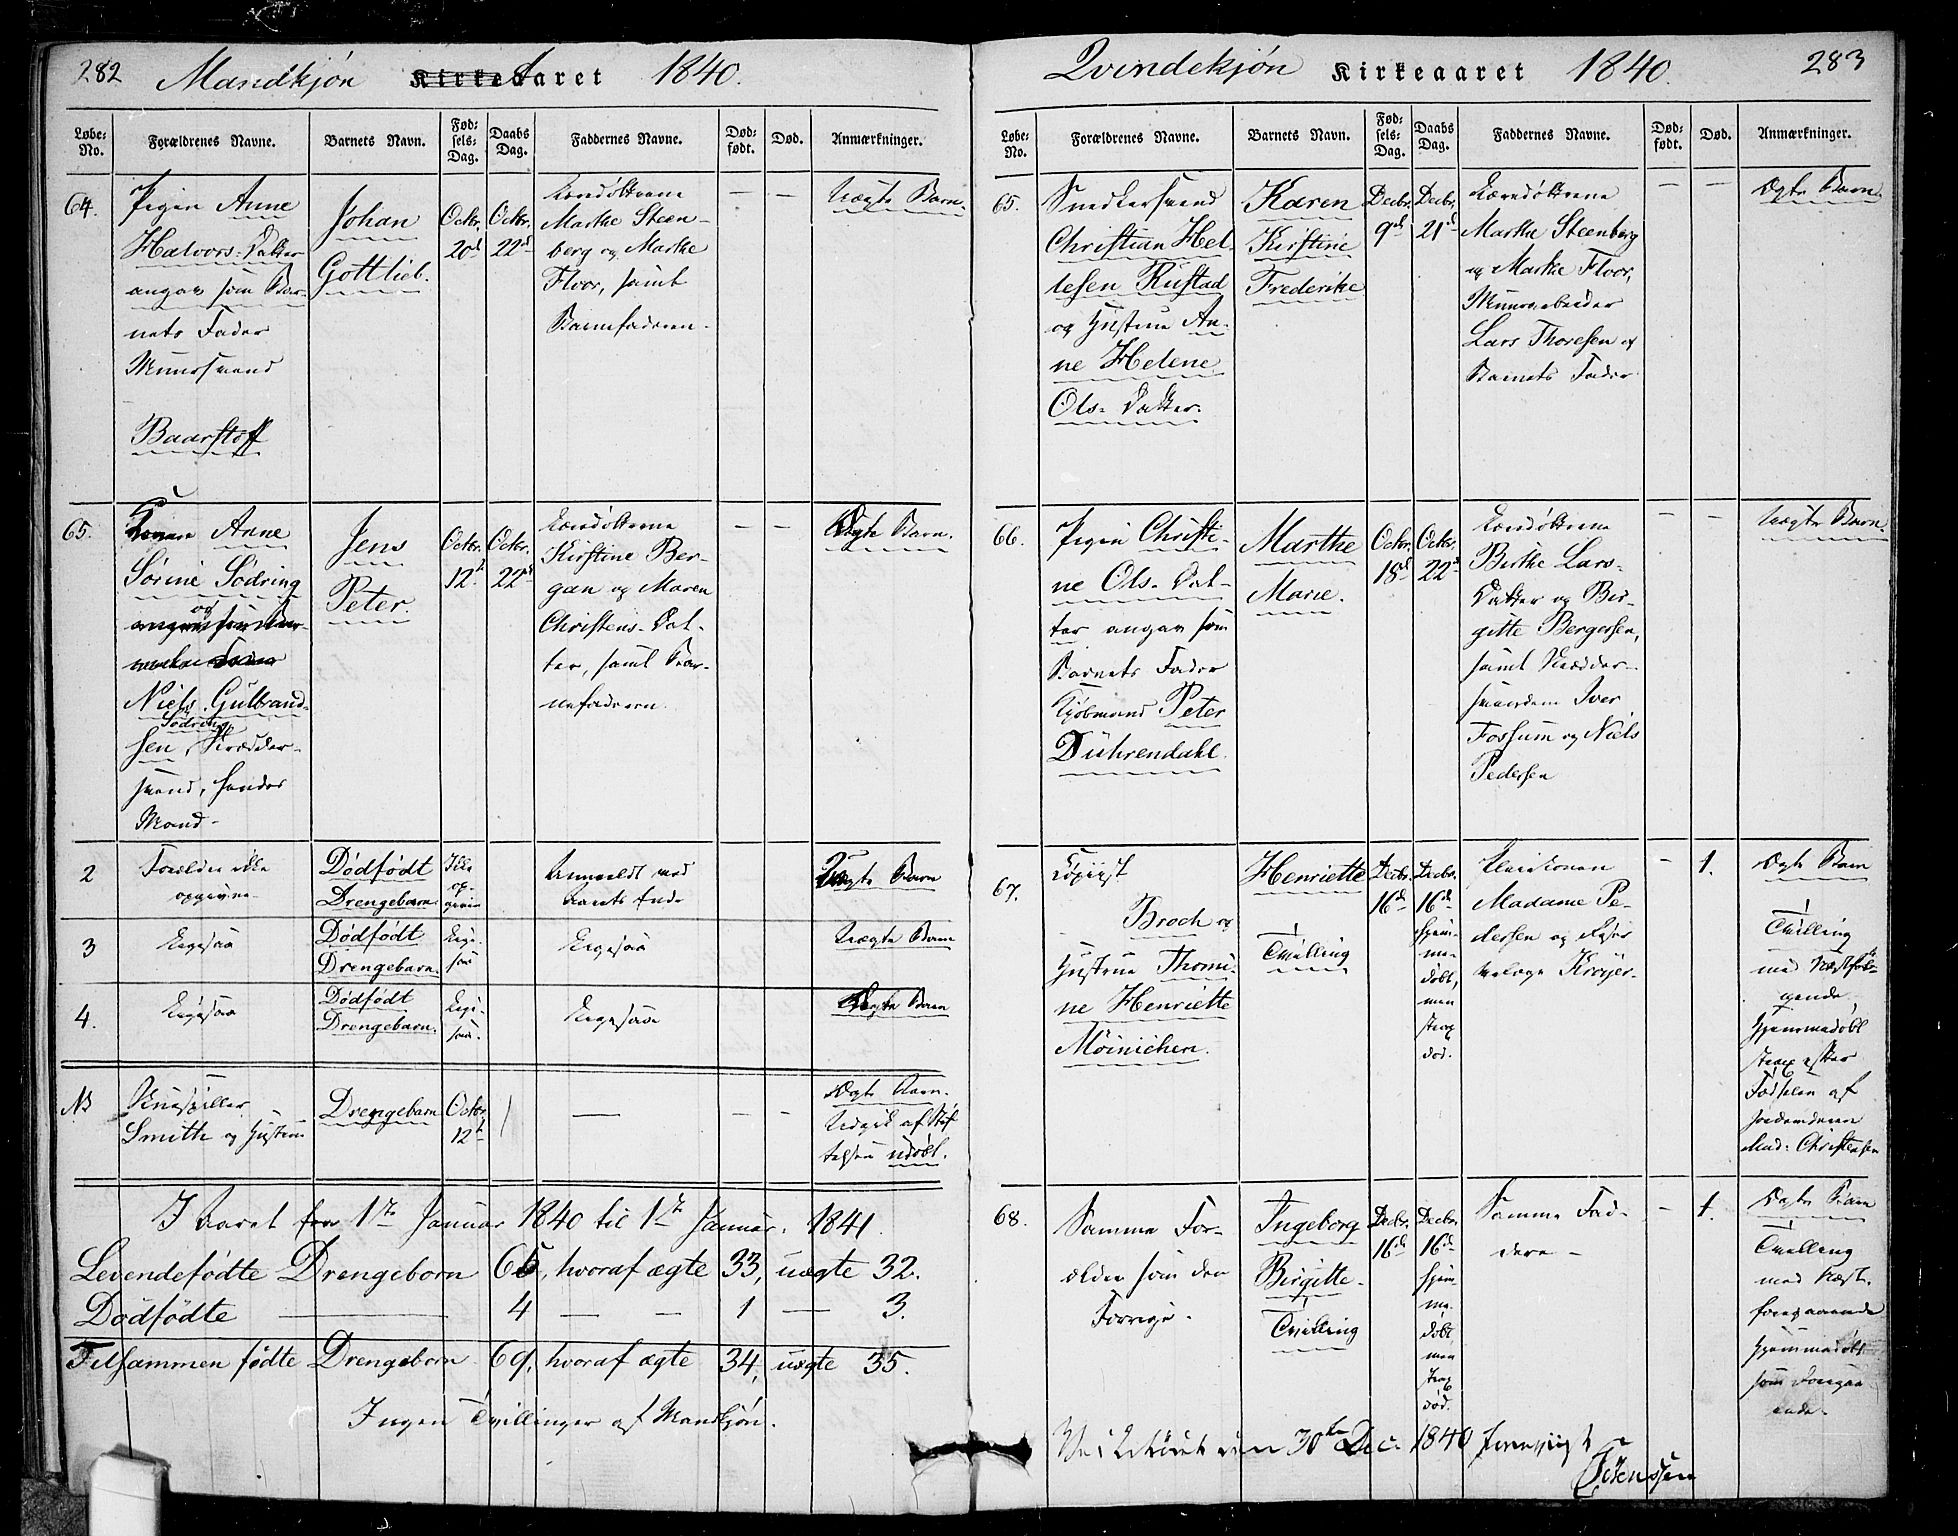 282 Mandkjøn Aaret 1840.
Løbe-No. Forældrenes Navne. Barnets Navn. Fødsels-Dag. Daabs Dag. Faddernes Navne. Død-født. Død. Anmærkninger.
64. Pigen Anne
Halvors-Datter
angav som Bar-
nets Fader
Muursvend
Baarstoff
Johan
Gottlieb.
Octbr.
20de
Octbr.
22de
Marthe Steen-
berg og Marthe
Floor, samt
Barnefaderen.
— —
Uægte Barn.
65. Konen Anne
Sørine Södring
og
Niels Gulbrand-
Södring
sen, Skrædder-
svend, hendes
Mand.
Jens
Peter.
Octbr.
12te
Octbr.
22de
Kirstine Ber-
gan og Maren
Christens-Dat-
ter, samt Bar-
nefaderen.
— —
Ægte Barn.
2 Forældre ikke
opgivne
Dödfödt
Drengebarn.
Ikke
op-
given
Anmeldt ved
Uægte Barn
3 Ligesaa
Dödfödt
Drengebarn.
Lige-
saa
Ligesaa
Uægte Barn
4. Ligesaa
Dödfödt
Drengebarn.
Lige-
saa.
Ligesaa
Ægte Barn
NB
Smith og Hustrue
Drengebarn
Octbr.
12te
—
— —
Ægte Barn.
udøbt.
I Aaret fra 1ste Januar 1840 til 1ste Januar 1841.
Levendefödte Drengebørn 65, hvoraf ægte 33, uægte 32.
Dödfödte — 4 — — 1 — 3.
Tilsammen födte Drengebørn 69, hvoraf ægte 34, uægte 35.
Ingen Tvillinger af Mandkjøn.
Qvindekjøn Kirkeaaret 1840. 283
Løbe-No. Forældrenes Navne. Barnets Navn. Fødsels-Dag. Daabs Dag. Faddernes Navne. Død-født. Død. Anmærkninger.
65. Snedkersvend
Christian Hel-
lesen Rustad
og Hustrue An-
ne Helene
Ols-Datter.
Karen
Kirstine
Frederike
Decbr.
9de
Decbr.
21de
Marthe Steenberg
og Marthe Floor,
Muurarbeider
Lars Thoresen og
Barnets Fader
— —
Ægte Barn.
66. Pigen Christi-
ne Ols-Dat-
ter angav som
Barnets Fader
Kjøbmand Peter
Dührendahl.
Marthe
Marie.
Octbr.
18de
Octbr.
22de
Birthe Lars-
Datter og Bir-
gitte Bergersen,
samt Skrædder-
svendene Iver
Fossum og Niels
Pedersen
— —
Uægte Barn.
67. Copiist
Broch og
Hustrue Thomi-
ne Henriette
Möinichen.
Henriette
Tvilling
Decbr.
16de
Decbr.
16de
hjem-
me-
døbt,
men
strax
død.
Madame Pe-
dersen og
Krøyer
— 1.
Ægte Barn
Tvilling
med Næstføl-
gende.
Hjemmedøbt
strax efter
Fødselen af
Jordemoderen
Mad: Christensen
68. Samme For-
ældre som den
Forrige.
Ingeborg
Birgitte.
Tvilling
Decbr.
16de
Decbr.
16de
hjem-
me-
døbt
men
strax
død.
Samme Fad-
dere
— 1.
Ægte Barn
Tvilling
med Næst-
foregaaende
Hjemmedøbt
som Foregaa-
ende.
30te Dec. 1840